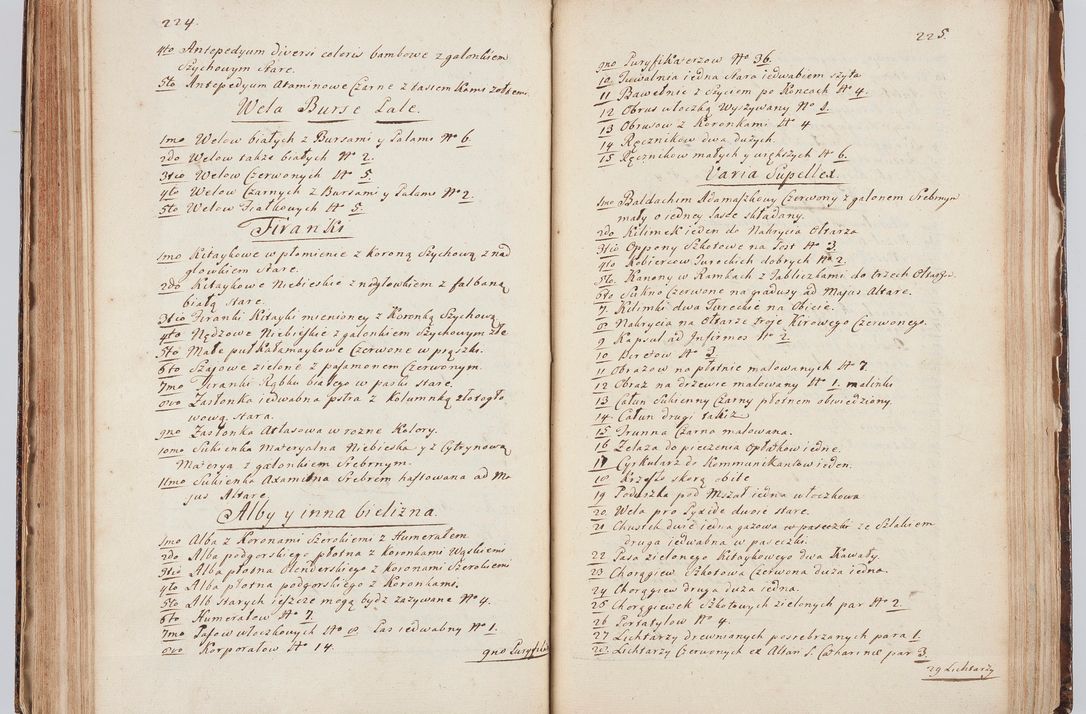 224.
4to Antepedyum diversi coloris bambowe z galonkiem
Szychowym stare.
5to Antepedyum Ataminowe Czarne z tasiemkami żołtemi
Wela Burse Pale.
1mo Welow białych z Bursami y Palami No 6.
2do Welow także białych No 2.
3tio Welow Czerwonych No 5.
4to Welow Czarnych z Bursami y Palami No 2.
5to Welow Fiałkowych No 5.
Firanki
1mo Kitaykowe w płomienie z koroną Szychową z nad
głowkiem stare.
2do Kitaykowe Niebieskie z nagłowkiem z falbaną
białą stare.
3tio Firanki Kitayki mienioney z Koronką Szychową
4to Nędzowe Niebieskie z galonkiem Szychowym złe
5to Małe pułkałamaykowe Czerwone w prążki.
6to Szajowe zielone z pasamonem Czerwonym.
7mo Firanki Rąbku białego w paski stare.
8vo Zasłonka iedwabna pstra z kolumnką złotogło
wową stara.
9no Zasłonka Atłasowa w rozne Kolory.
10mo Sukienka Materyalna Niebieska y z Cytrynową
Materyą z galonkiem Srebrnym.
11mo Sukienka Axamitna Srebrem haftowana ad Ma
jus Altare.
Alby y inna bielizna.
1mo Alba z Koronami Szerokiemi z Humerałem.
2do Alba podgorskiego płotna z koronkami Wąskiemi
3tio Alba płotna Olenderskiego z koronami Szerokiemi
4to Alba płotna podgorskiego z Koronkami.
5to Alb starych ieszcze mogą bydz zazywane No 4.
6to Humerałow No 7.
7mo Pasow włoczkowych No 8. Pas iedwabny No 1.
8vo Korporałow No 14.
9no Puryfika
225.
9no Puryfikaterzow No 36.
10 Tuwalnia iedna stara iedwabiem szyta
11 Bawełnic z Szyciem po Koncach No 4.
12 Obrus włoczką Wyszywany No 1.
13 Obrusow z Koronkami No 4
14 Ręcznikow dwa dużych
15 Ręcznikow małych y większych No 6.
Varia Supellex
1mo Baldachim Adamaszkowy Czerwony z galonem Srebrnym
mały o iedney lasce składany.
2do Kilimek ieden do Nakrycia Ołtarza
3tio Oppony Szkotowe na Post No 3.
4to Kobiercow Tureckich dobrych No 2.
5to Kanony w Ramkach z Tabliczkami do trzech Ołtarzow.
6to Sukno Czerwone na gradusy ad Majus Altare.
7. Kilimki dwa Tureckie na Obicie.
8 Nakrycia na Ołtarze troje Kirowego Czerwonego.
9 Kapsuł ad Infirmos No 2.
10 Biretow No 2
11 Obrazow na płotnie malowanych No 7
12 Obraz na drzewie malowany No 1. malinki
13 Całun Sukienny Czarny płotnem obwiedziony.
14. Całun drugi takiz
15 Trunna Czarno malowana.
16 Zelaza do pieczenia Opłatkow iedne.
17 Cyrkularz do Kommunikantow ieden.
18 Krzesło skorą obite
19 Poduszka pod Mszał iedna włoczkowa
20. Wela pro Pyxide dwoie stare.
21 Chustek dwie iedna gazowa w paseczki ze Szlakiem
druga iedwabna w paseczki
22 Pasa zielonego Kitaykowego dwa Kawały.
23 Chorągiew Szkotowa Czerwona duża iedna.
24 Chorągiew druga duża iedna.
25 Chorągiewek Szkotowych zielonych par No 2.
26 Portatylow No 4.
27 Lichtarzy drewnianych posrebrzanych para 1
28. Lichtarzy Czerwonych ex Altari S. Catharinæ par 3.
29 Lichtarzy